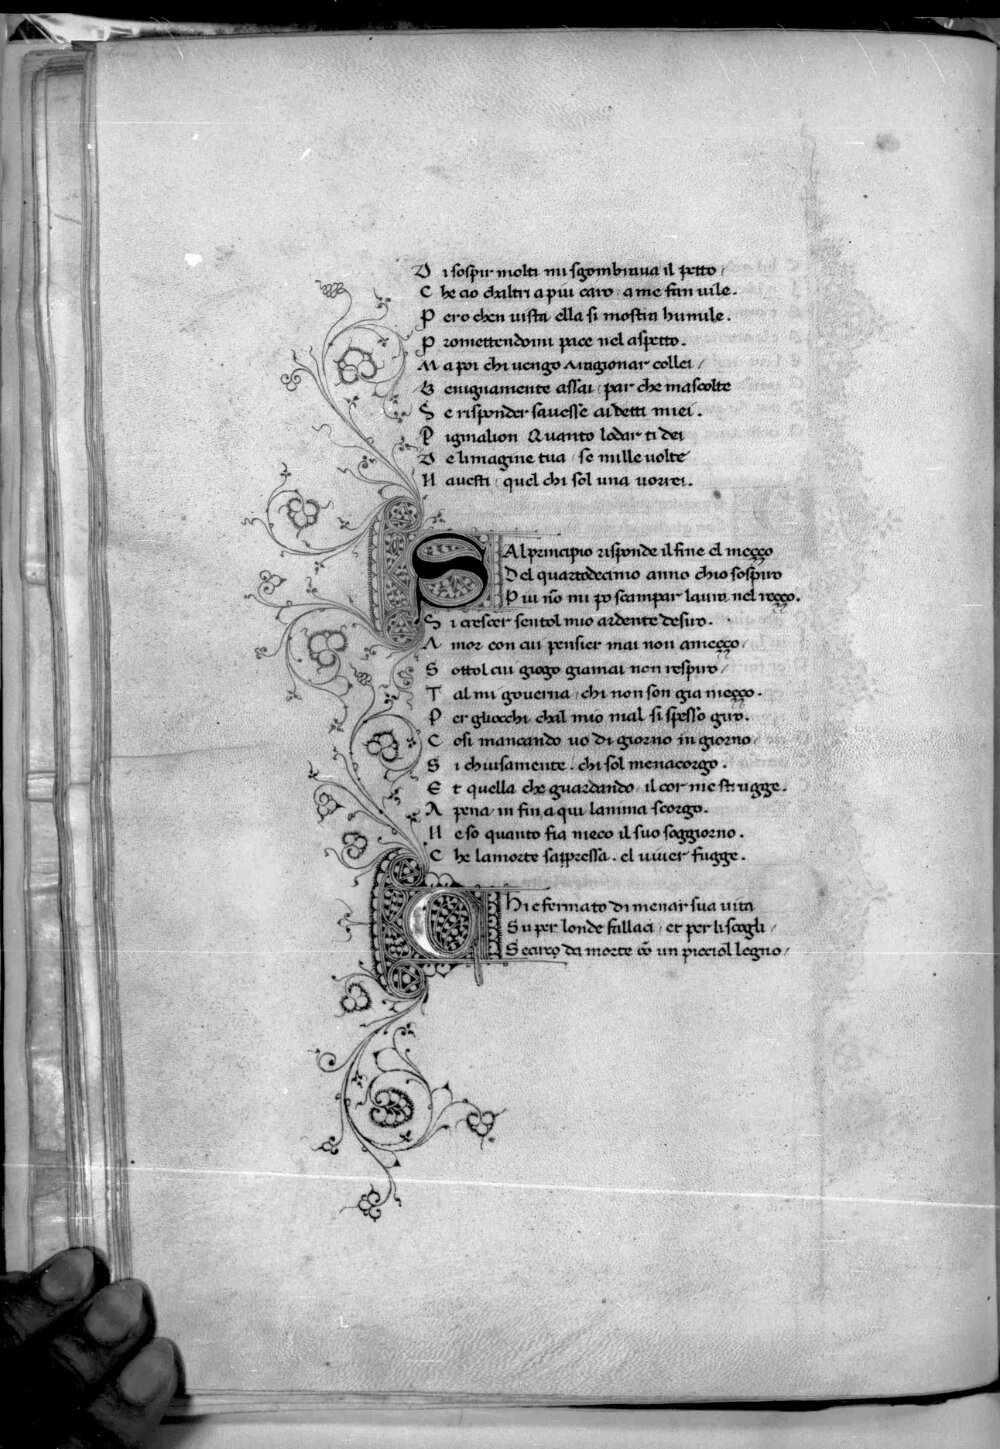 D i sospir molti mi sgombraua il petto /
C he cio chaltri a piu caro a me fan uile .
P ero chen uista ella si mostra humile .
P romettendomi pace nel aspetto .
M a poi chi uengo a ragionar collei /
B enignamente assai / par che mascolte
S e risponder sauesse ai detti miei .
P igmalion Quanto lodar ti dei
D e limagine tua / se mille uolte
N auesti / quel chi sol una uorrei .
S Al principio risponde il fine el meçço
Del quartodecimo anno chio sospiro
P iu nō mi po scampar laura nel reçço .
S i crescer sentol mio ardente desiro .
A mor con cui pensier mai non ameçço /
S ottol cui giogo giamai non respiro /
T al mi gouerna / chi non son gia meçço .
P er gliocchi chal mio mal si spesso giro .
C osi mancando uo di giorno in giorno /
S i chiusamente . chi sol menacorgo .
E t quella che guardando / il cor mi strugge .
A pena in fin a qui lanima scorgo .
N e so quanto fia meco il suo soggiorno .
C he la morte sappressa . el uiuer fugge .
C Hi e fermato di menar sua uita
S u per londe fallaci / et per li scogli /
S ceuro da morte cō un picciol legno /